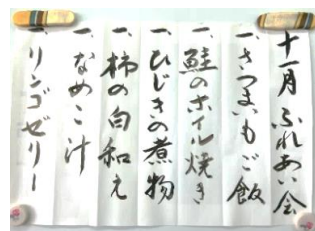 十一月 ふれあい会
一、さつまいもご飯
一、鮭のホイル焼き
一、ひじきの煮物
一、柿の白和え
一、なめこ汁
一、リンゴゼリー